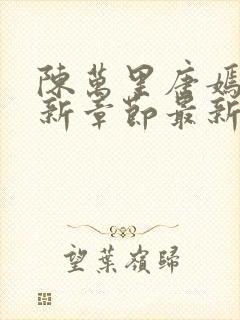 陳萬里唐嫣
新章節最新
望葉嶺歸